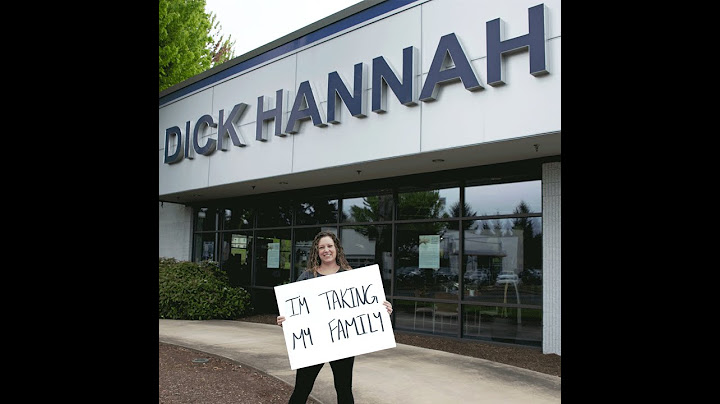 DICK HANNAH
IM TAKING
MY FAMILY